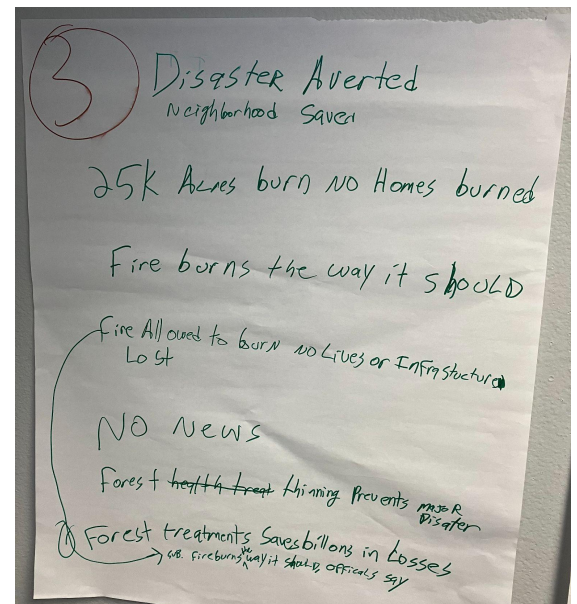 3
Disaster Averted
Neighborhood Saved
25K Acres burn NO Homes burned
Fire burns the way it shOULD
fire Allowed to burn NO Lives or Infrastuctura
Lost
NO News
Forest health treat thinning Prevents MAJOR
Disater
Forest treatments Saves billons in Losses
SUB. fire burns the way it should, officals say